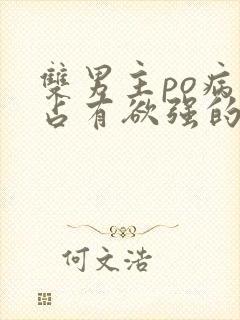 雙男主po病
占有欲强的
何文浩